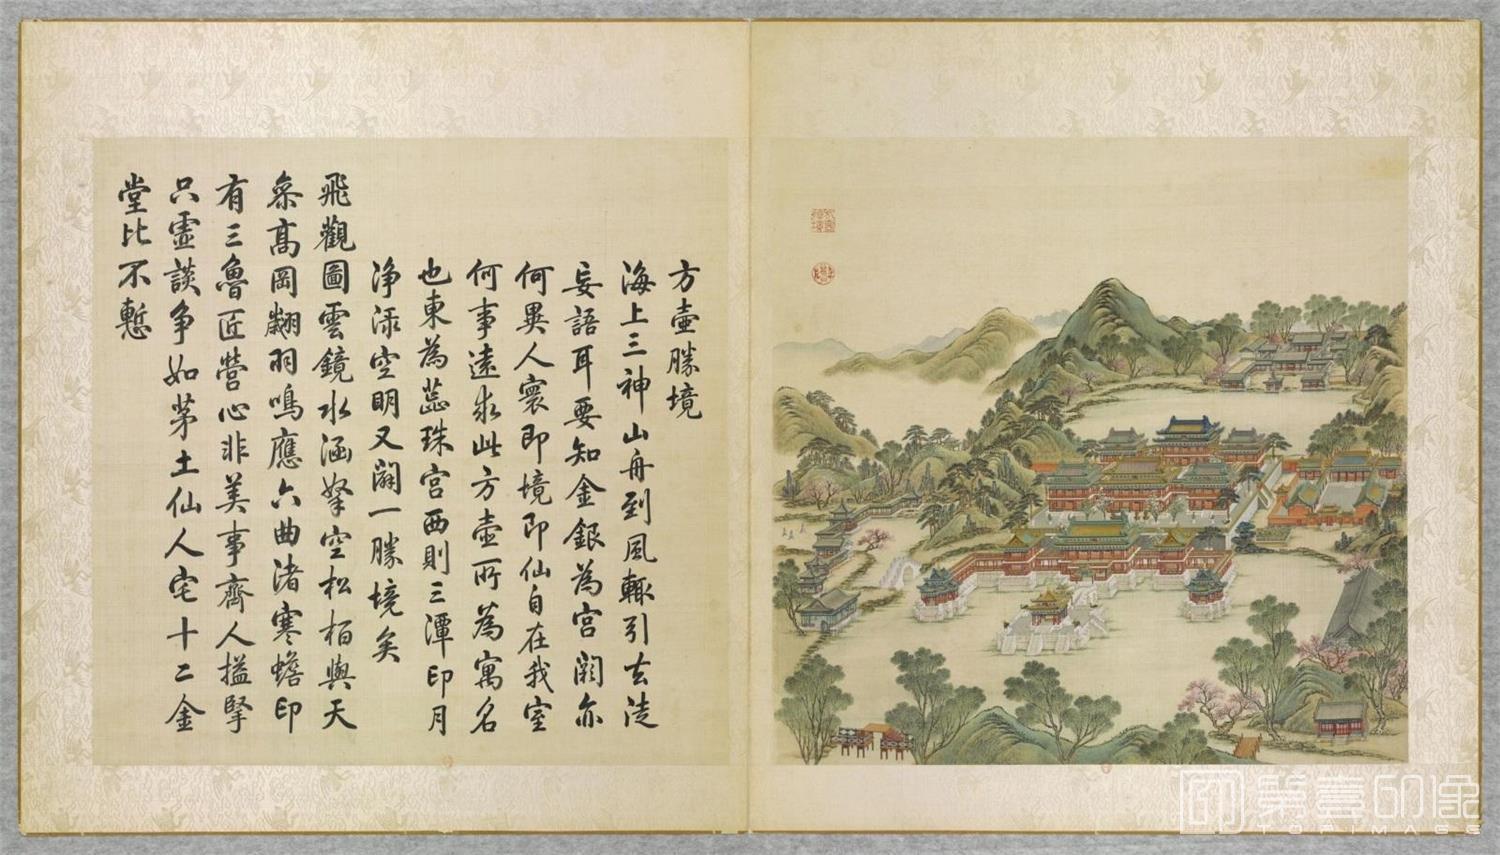 方壺勝境
海上三神山舟到風輒引去徒
妄語耳要知金銀為宮闕亦
何異人寰即境即仙自在我室
何事遠求此方壺所為寓名
也東為蕊珠宮西則三潭印月
淨渌空明又闢一勝境矣
飛觀圖雲鏡水涵拏空松栢與天
叅高岡翽羽鳴應六曲渚寒蟾印
有三魯匠營心非美事齊人搤掔
只虛談爭如茅土仙人宅十二金
堂比不慙
第壹印像
TOPIMAGE